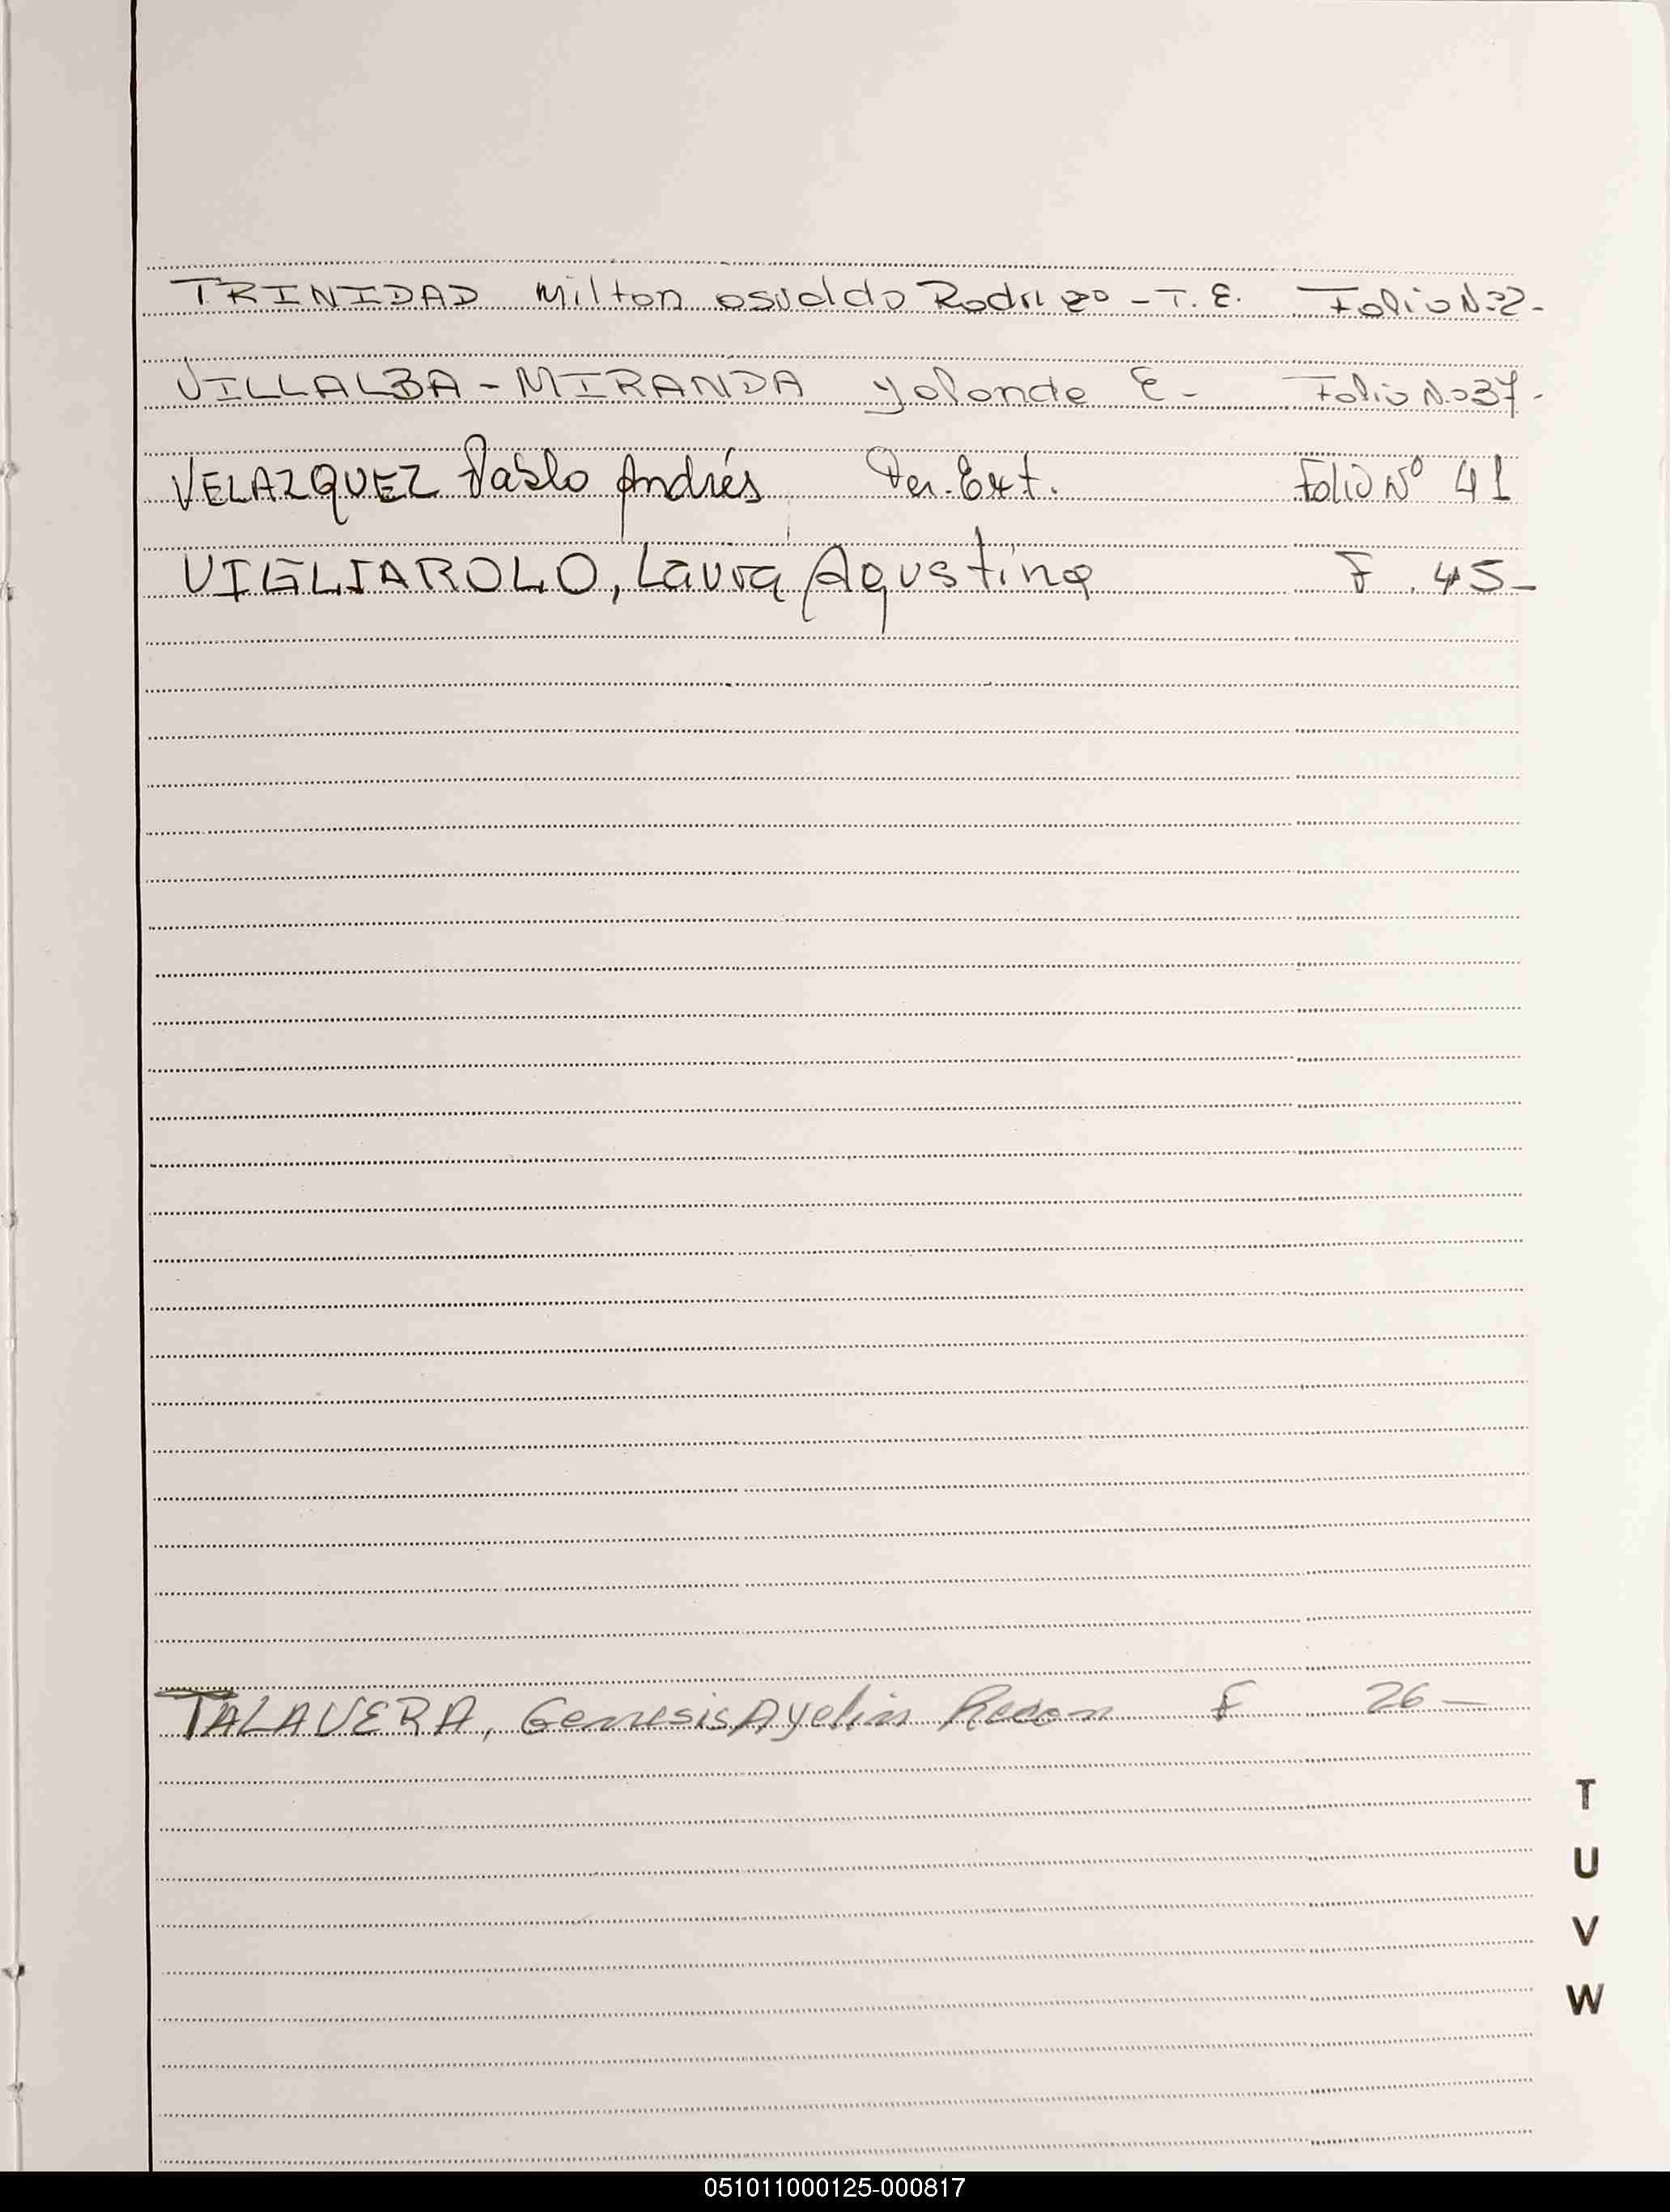 TRINIDAD Milton osvaldo Rodrigo - T. E. Folio N.º 2-
VILLALBA - MIRANDA Yolanda E- Folio N.º 37-
VELAZQUEZ Pablo Andrés Per. Ext. Folio Nº 41
VIGLIAROLO, Laura Agustina F. 45-
TALAVERA, Genesis Ayelin Recon F 26-
T
U
V
W
051011000125-000817